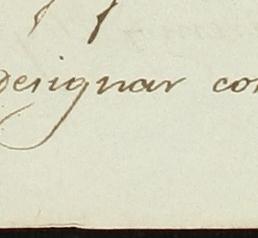 designar con